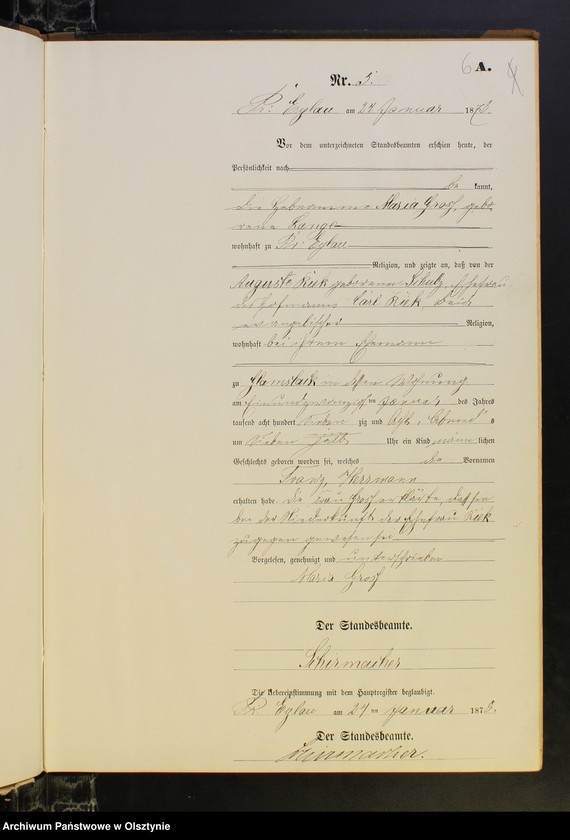 6 A.
Nr. 5.
Pr: Eylau am 24 Januar 1878.
Vor dem unterzeichneten Standesbeamten erschien heute, der
Persönlichkeit nach
be kannt,
die Hebamme Maria Groß, gebo
rene Lange
wohnhaft zu Pr: Eylau
Religion, und zeigte an, daß von der
Auguste Kiek geborenen Schulz, Ehefrau
des Hofmanns Carl Kiek, beide
evangelischer Religion,
wohnhaft bei ihrem Ehemanne
zu in Wohnung
am einundzwanzigsten Januar des Jahres
tausend acht hundert sieben zig und acht Abends
um sieben Uhr ein Kind männ lichen
Geschlechts geboren worden sei, welches die Vornamen
Franz, Herrmann
erhalten habe. Die Frau Groß erklärte, daß sie
bei der Niederkunft der Ehefrau Kiek
zugegen gewesen sei
Vorgelesen, genehmigt und unterschrieben
Maria Groß
Der Standesbeamte.
Schirmacher
Die Uebereinstimmung mit dem Hauptregister beglaubigt.
Pr Eylau am 24 ten Januar 1878.
Der Standesbeamte.
Schirmacher.
Archiwum Państwowe w Olsztynie